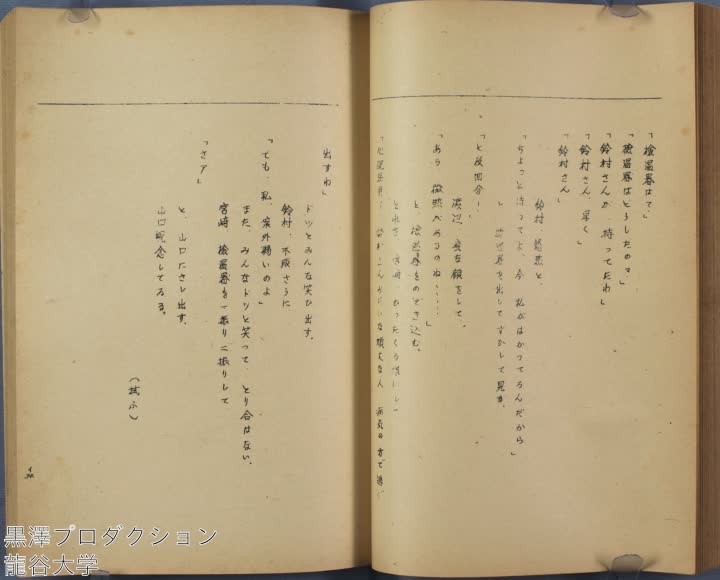 「檢温器は?」
「檢温器はどうしたの?」
「鈴村さんが、持ってたわ」
「鈴村さん、早く」
「鈴村さん」
鈴村、悠然と
「ちょっと待ってよ、今 私がはかってるんだから」
檢温器を出してすかして見る。
「七度四分!」
渡辺、変な顔をして、
「あら、微熱があるのね……」
と、檢温器をのぞき込む。
出すわ」
ドッとみんな笑ひ出す。
鈴村、不服さうに
「でも、私、案外弱いのよ」
また、みんなドッと笑って、とり合はない。
宮崎、檢温器を一振り二振りして
「さア」
と、山口にさし出す。
山口観念してゐる。
黒澤プロダクション
龍谷大学